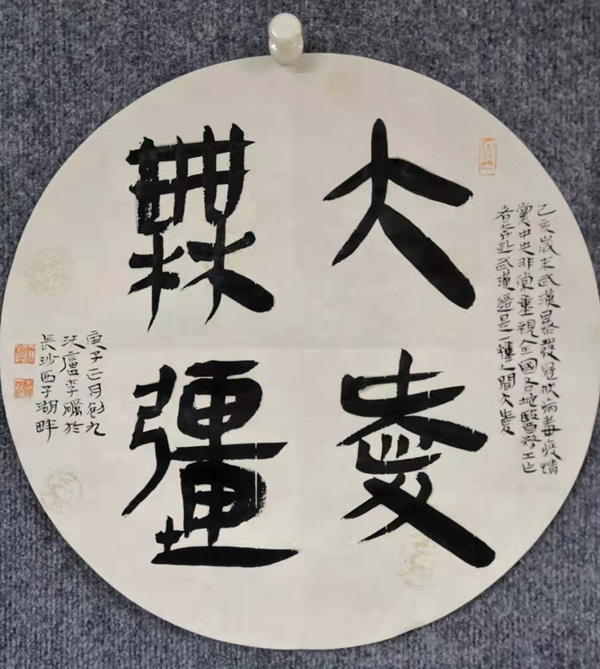 大愛
無疆
乙亥歲末武漢暴發冠狀病毒疫情
黨中央非常重視全國各地醫務工作
者奔赴武漢這是一種人間大愛
庚子正月初九
沃廬李騰於
長沙西子湖畔